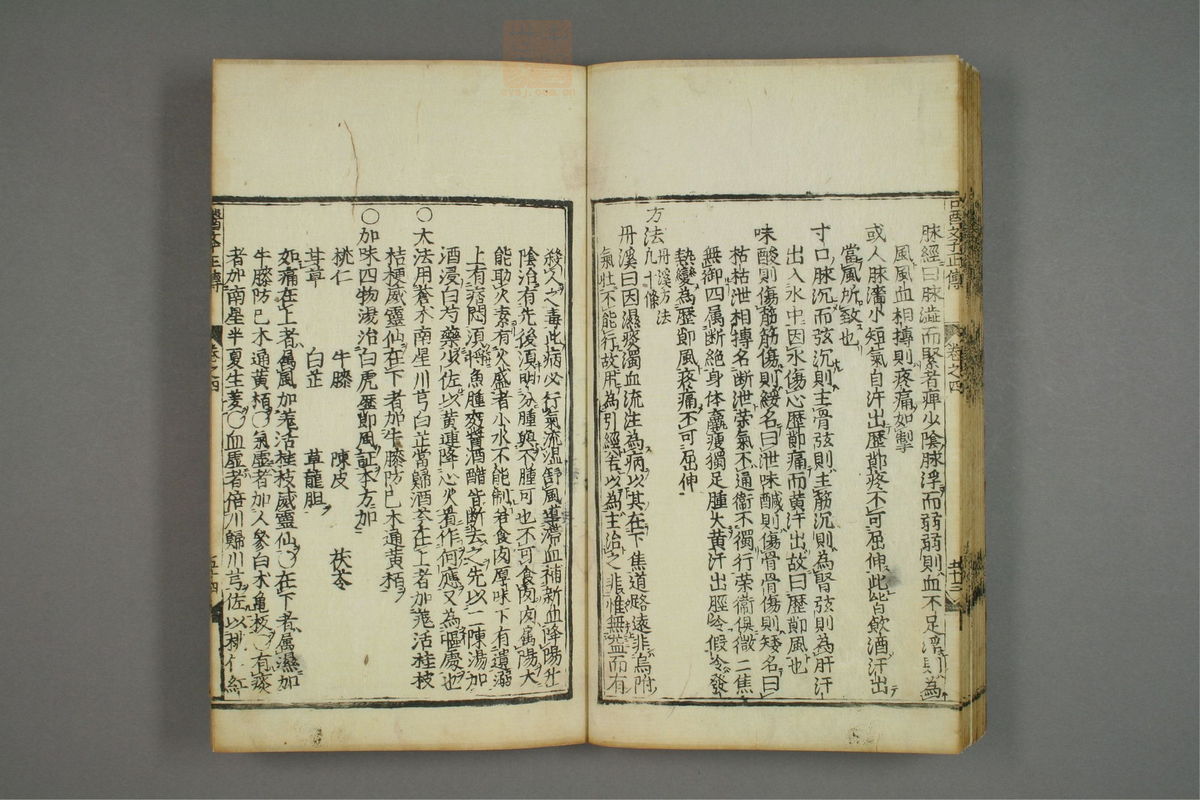 脉經曰脉澁而緊者痺少陰脉浮而弱弱則血不足浮則為
風風血相搏則疼痛如掣
或人脉濇小短氣自汗出歷節疼不可屈伸此皆飲酒汗出
當風所致也
寸口脉沉而弦沉則主骨弦則主筋沉則為腎弦則為肝汗
出入水中因水傷心歷節痛而黃汗出故曰歷節風也
味酸則傷筋筋傷則緩名曰泄味鹹則傷骨骨傷則矮名曰
枯枯泄相搏名断泄荣氣不通衞不獨行荣衞俱微二焦
無御四属断絶身体羸瘦獨足腫大黃汗出脛冷假令發
熱變為歷節風疼痛不可屈伸
方法九十條
丹溪方法
丹溪曰因濕痰濁血流注為病以其在下焦道路遠非烏附
氣壯不能行故用為引經若以為主治之非惟無益而有
殺人之毒此病必行氣流濕舒風導滞血補新血降陽升
陰治有先後須明分腫與不腫可也不可食肉肉属陽大
能助火素有火盛者小水不能制若食肉厚味下有遺溺
上有痞悶須將魚腫麪醬酒醋皆断去之先以二陳湯加
酒浸白芍藥少佐以黃連降心火看作何應又為區處也
〇大法用蒼朮南星川芎白芷當歸酒芩在上者加羗活桂枝
桔梗威靈仙在下者加牛膝防已木通黃栢
〇加味四物湯治白虎歷節風証本方加
桃仁 牛膝 陳皮 茯苓
甘草 白芷 草龍胆
如痛在上者属風加羗活桂枝威靈仙〇在下者属濕加
牛膝防已木通黃栢〇氣虛者加人參白朮亀板〇有痰
者加南星半夏生姜〇血虛者倍川歸川芎佐以桃仁紅
醫學正傳
卷之四
五十四
卷之四